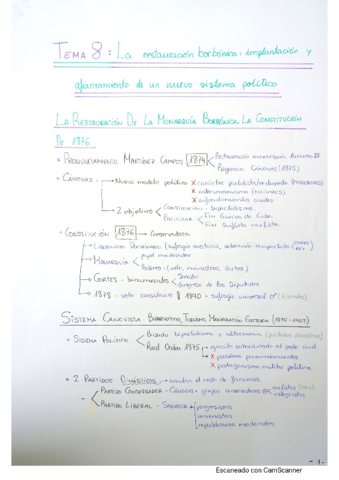 TEMA 8: La restauración borbónica: implantación y
afianzamiento de un nuevo sistema político
LA RESTAURACIÓN DE LA MONARQUÍA BORBÓNICA. LA CONSTITUCIÓN
DE 1876
PRONUNCIAMIENTO MARTÍNEZ CAMPOS 1874 Restauración monarquía Alfonso XII
Regencia Cánovas (1875)
CÁNOVAS: Nuevo modelo político x carácter partidista
x intervencionismo
x enfrentamientos
2 objetivos Constitución - bipartidismo
Pacificar Fin Guerra de Cuba
Fin conflicto carlista
CONSTITUCIÓN 1876 → Conservadora
Liberalismo (sufragio soberanía compartida
MONARQUÍA papel moderador
Poderes: (veto, ministros, Cortes)
CORTES - bicamerales Senado
Congreso de los Diputados
1878 - voto censitario 1890 - sufragio universal
SISTEMA CANOVISTA - BIPARTIDISMO, TURNISMO,
Sistema Político Basado bipartidismo y alternancia (partidos dinásticos)
Real Orden 1875 → ejército subordinado al poder civil
x problema pronunciamientos
x protagonismo militar política
2 PARTIDOS DINÁSTICOS
PARTIDO CONSERVADOR - Cánovas: grupos
PARTIDO LIBERAL - SAGASTA progresistas
unionistas
republicanos moderados
-1-
Escaneado con CamScanner